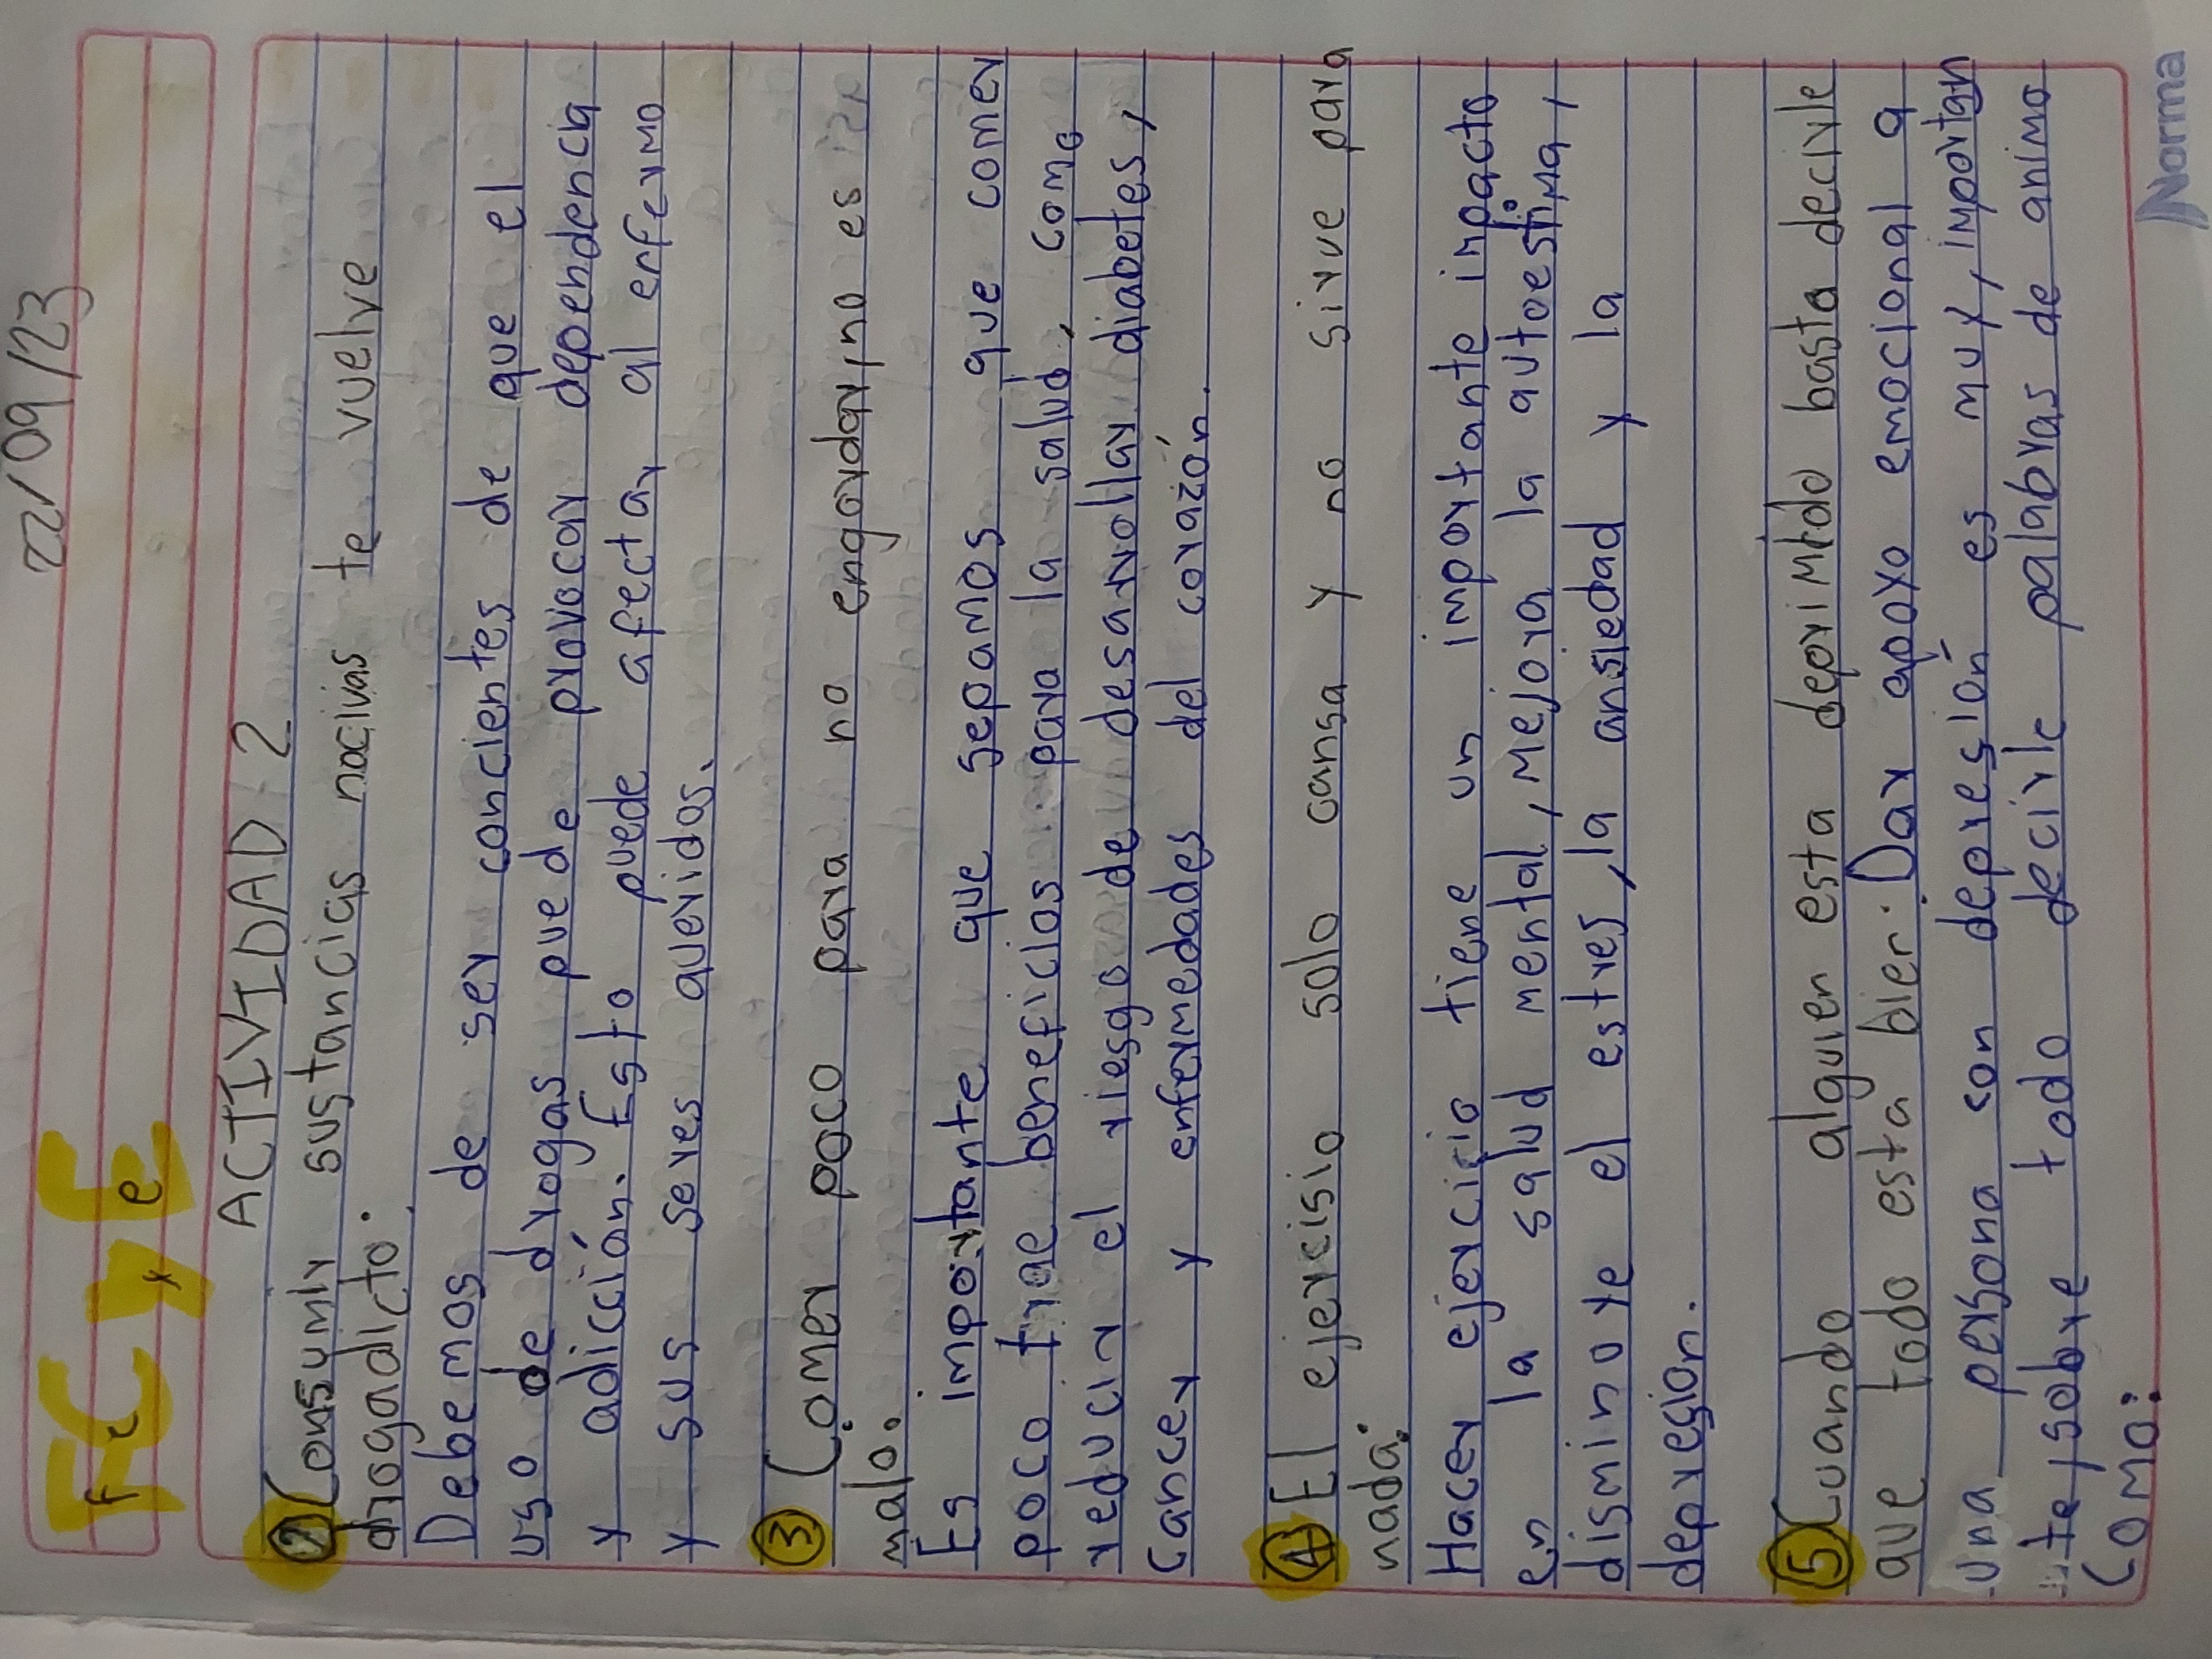 22/09/23
FC y E
ACTIVIDAD 2
2 Consumir sustancias nocivas te vuelve
drogadicto.
Debemos de ser concientes de que el
uso de drogas puede provocar dependencia
y adicción. Esto puede afectar al enfermo
y sus seres queridos.
3 Comer poco para no engordar, no es
malo.
Es importante que sepamos que comer
poco trae beneficios para la salud, como
reducir el riesgo de desarrollar diabetes,
cancer y enfermedades del corazón.
4 El ejercisio solo cansa y no sirve para
nada.
Hacer ejercicio tiene un importante impacto
en la salud mental, mejora la autoestima,
disminuye el estres, la ansiedad y la
depresion.
5 Cuando alguien esta deprimido basta decirle
que todo esta bien. Dar apoyo emocional a
una persona con depresión es muy, importan
te, sobre todo decirle palabras de animo
como:
Norma